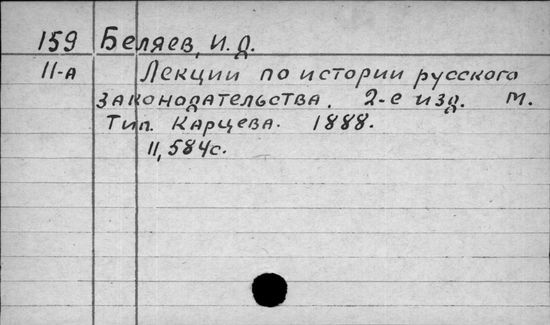 159 Беляев, И. Д.
11-а Лекции по истории русского
законодательства. 2-е изд. М.
Тип. Карцева. 1888.
11, 584с.